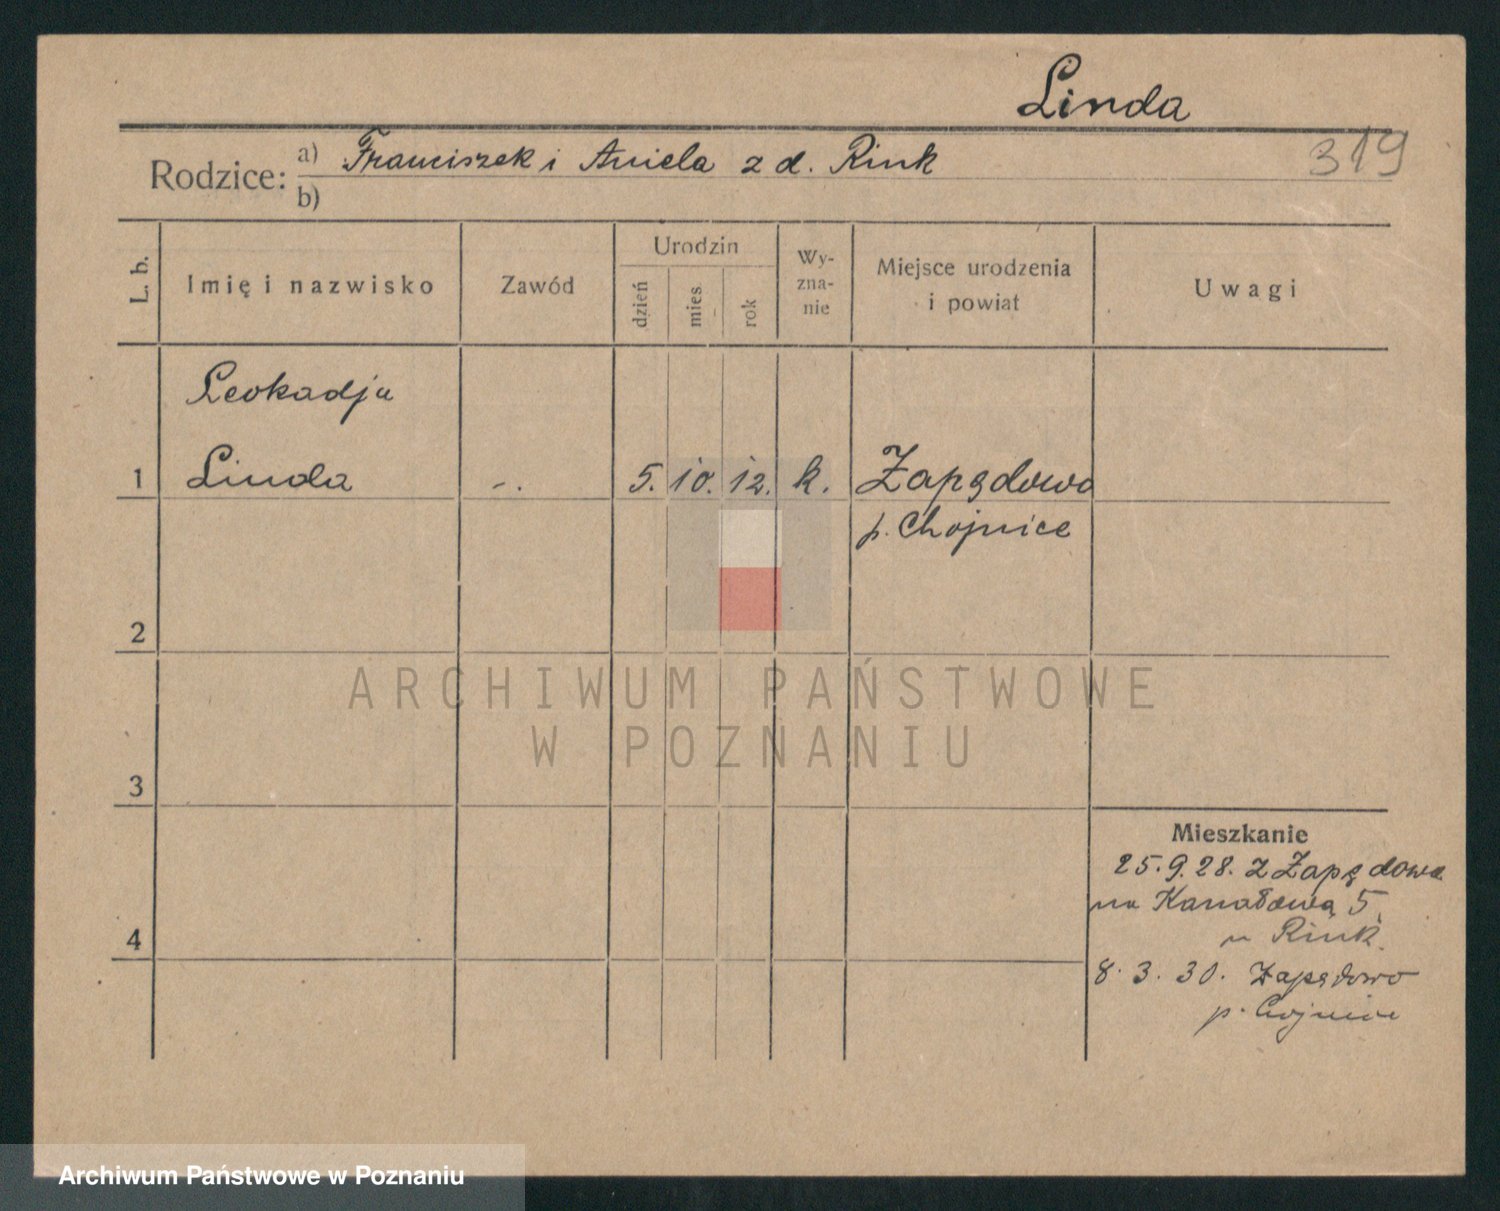 Linda
Rodzice: a) Franciszek i Aniela z d. Rink
319
b)
L. b.
Imię i nazwisko
Zawód
Urodzin
dzień
mies.
rok
Wy-
zna-
nie
Miejsce urodzenia
i powiat
Uwagi
Leokadja
1 Linda -. 5. 10. 12. k. Zapędowo
p. Chojnice
2
3
4
Mieszkanie
25.9.28. z Zapędowa
na Kanałową 5.
u Rink.
8.3.30. Zapędowo
p. Chojnice
ARCHIWUM PAŃSTWOWE
W POZNANIU
Archiwum Państwowe w Poznaniu